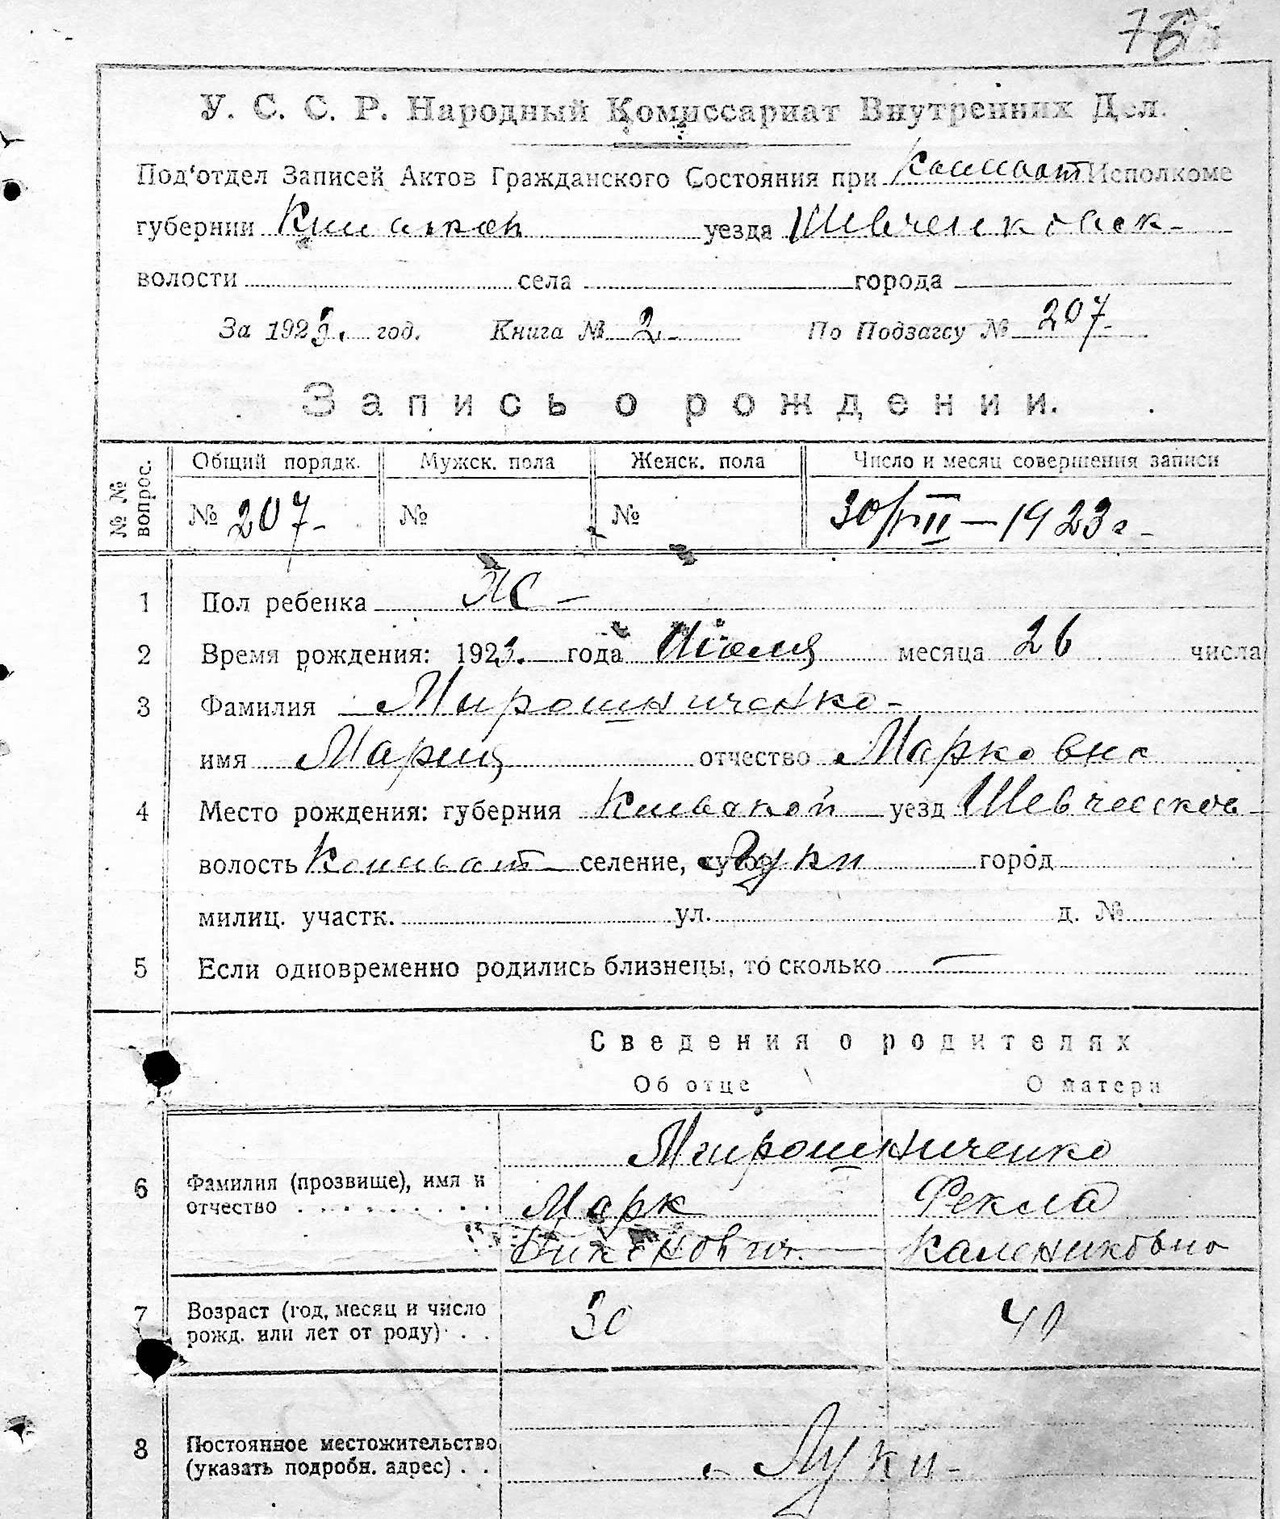 76
У. С. С. Р. Народный Комиссариат Внутренних Дел.
Под'отдел Записей Актов Гражданского Состояния при Кошеват Исполкоме
губернии Киевской уезда Шевченковск-
волости села города
За 1923. год. Книга № 2- По Подзагсу № 207-
Запись о рождении.
№ № вопрос. Общий порядк. Мужск. пола Женск. пола Число и месяц совершения записи
№ 207- № № 30/VII-1923 г-
1 Пол ребенка Ж-
2 Время рождения: 1923. года Июля месяца 26 числа
3 Фамилия Мирошниченко-
имя Мария отчество Марковна
4 Место рождения: губерния Киевской уезд Шевченков-
волость Кошеват- селение, Луки город
милиц. участк. ул. д. №
5 Если одновременно родились близнецы, то сколько —
Сведения о родителях
Об отце О матери
Мирошниченко
6 Фамилия (прозвище), имя и Марк Фекла
отчество Калениковна
7 Возраст (год, месяц и число 30 40
рожд. или лет от роду)
8 Постоянное местожительство
(указать подробн. адрес) с. Луки-